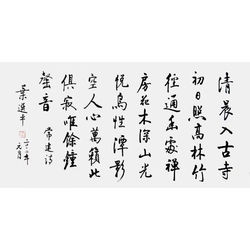 清晨入古寺
初日照高林竹
徑通幽處禪
房花木深山光
悅鳥性潭影
空人心萬籟此
俱寂唯餘鐘
磬音
常建詩
葉選平
元月